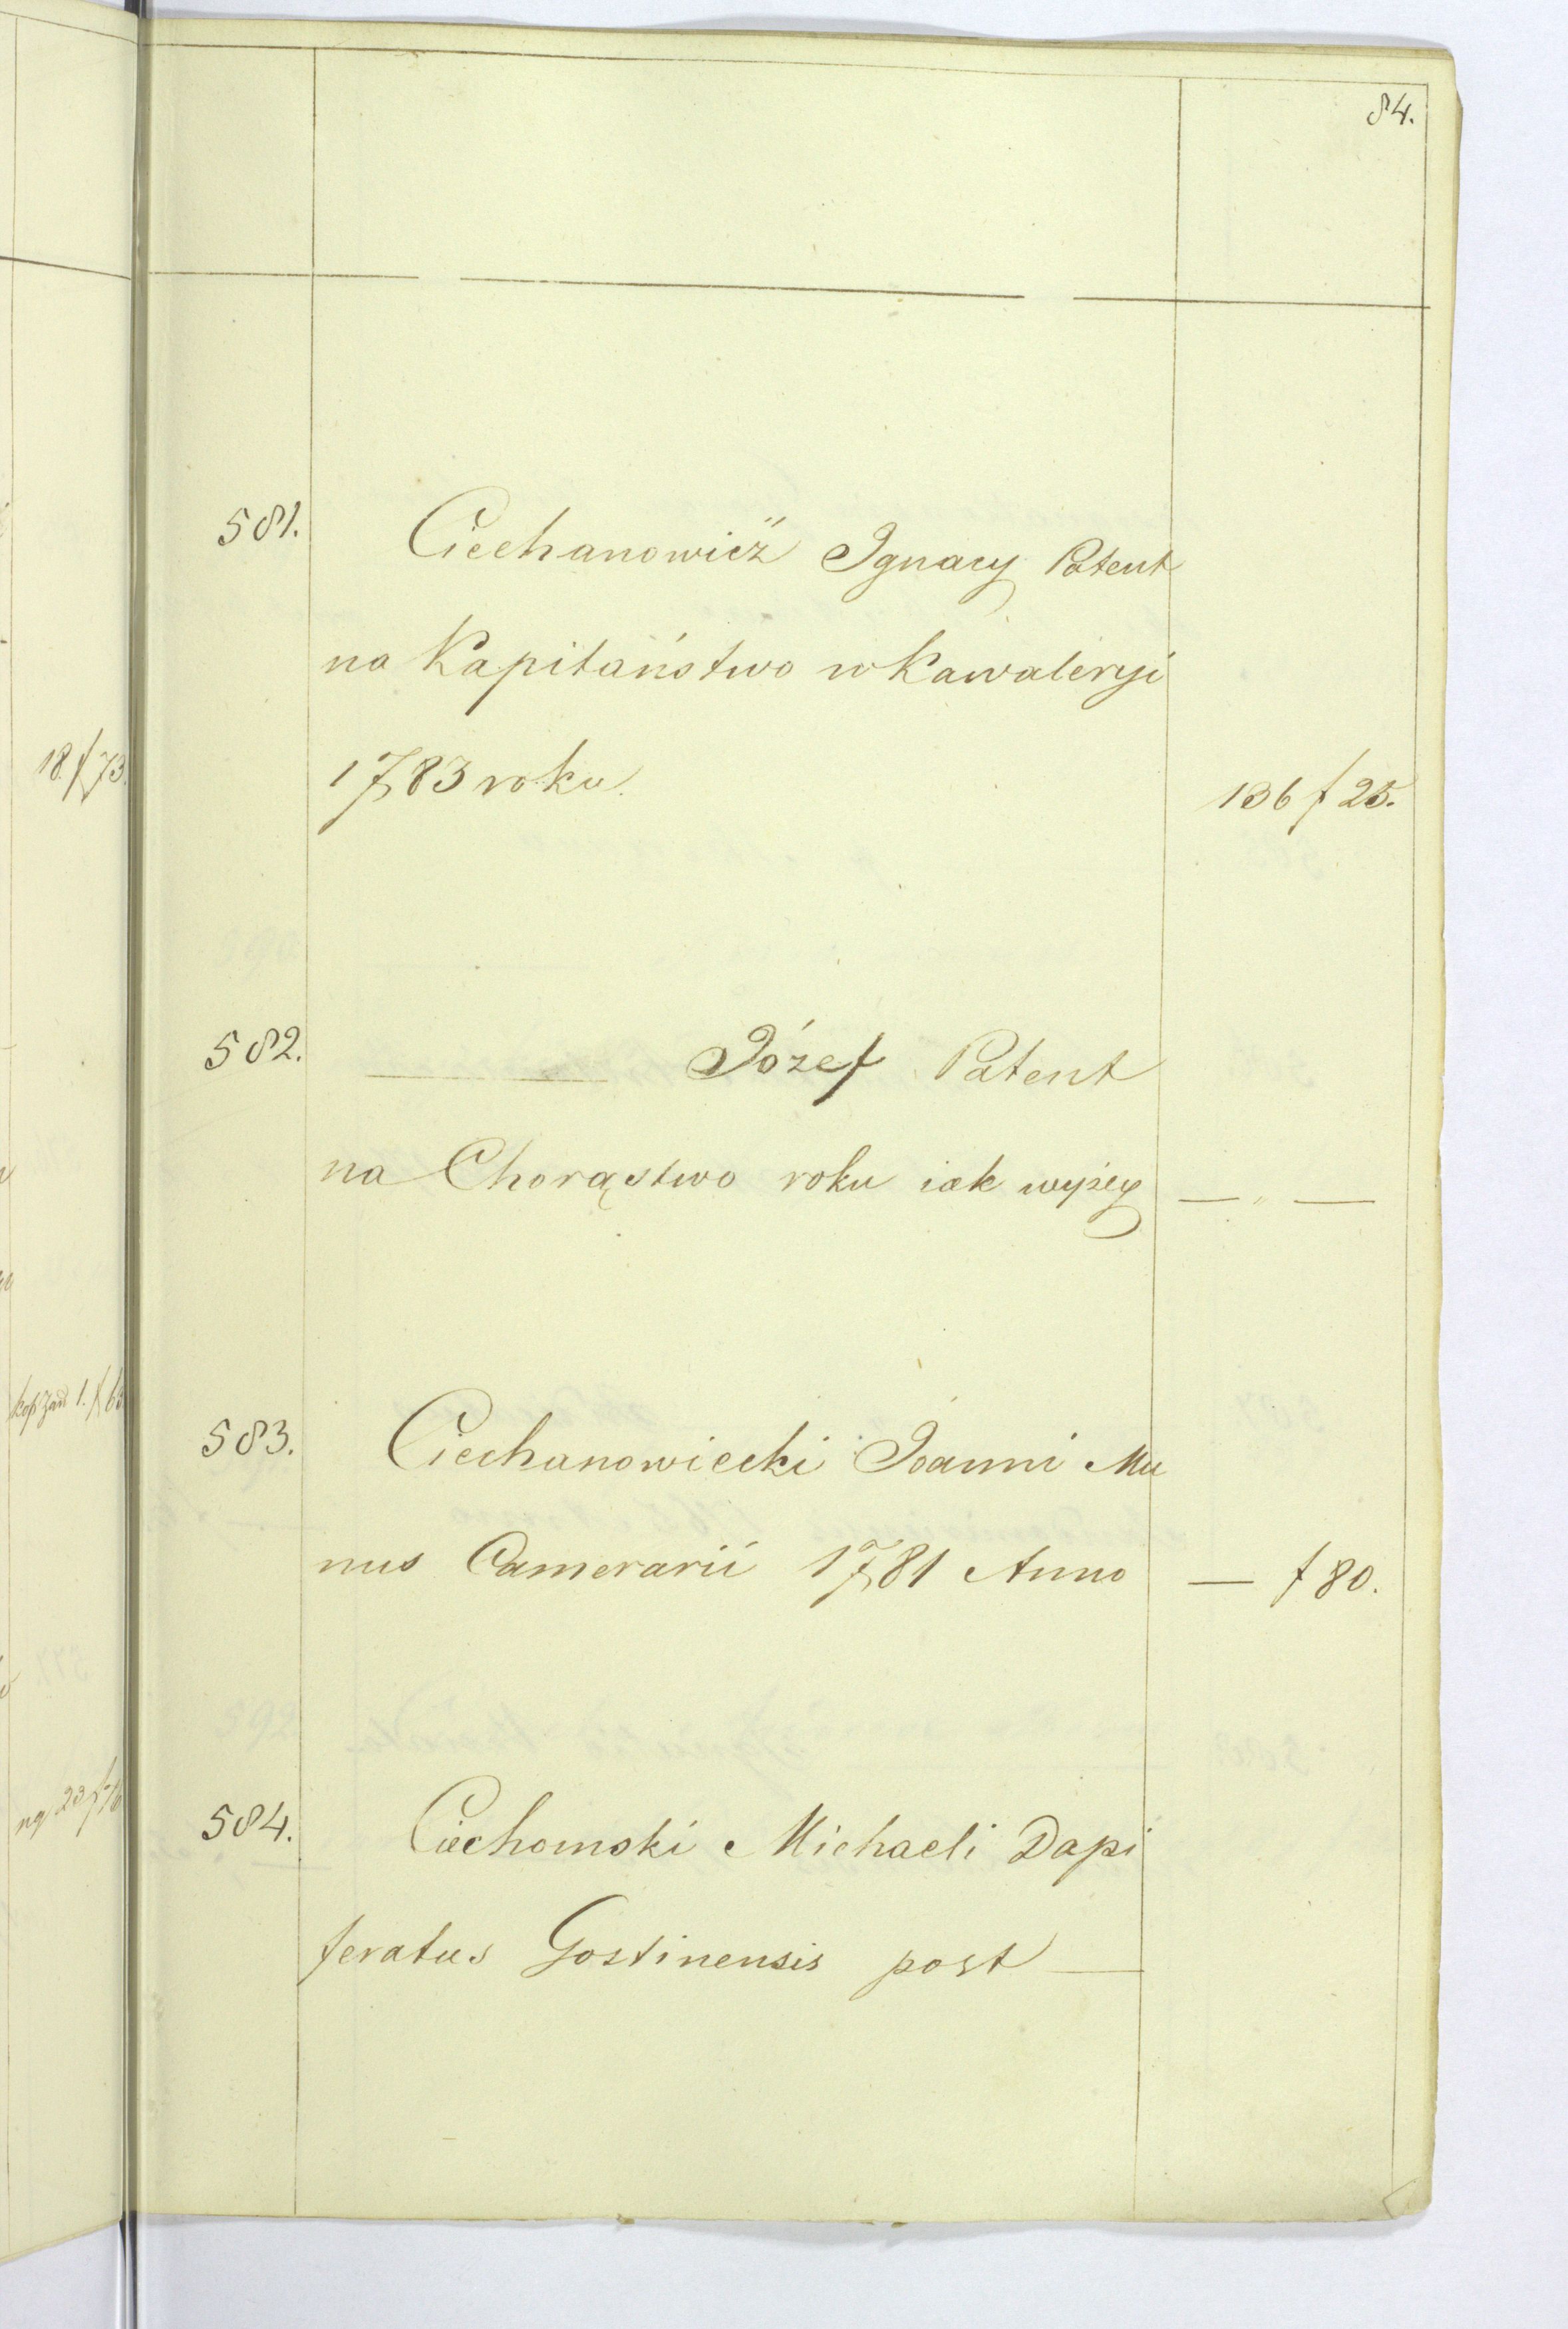 84.
581. Ciechanowicz Ignacy Patent
na Kapitaństwo w Kawaleryi
1783 roku. 136 f 25.
582. ——— Józef Patent
na Chorąstwo roku iak wyżey — „ —
583. Ciechanowiecki Joanni Mu
nus Camerarii 1781 Anno — f 80.
584. Ciechomski Michaeli Dapi
feratus Gostinensis post —
18 f 73.